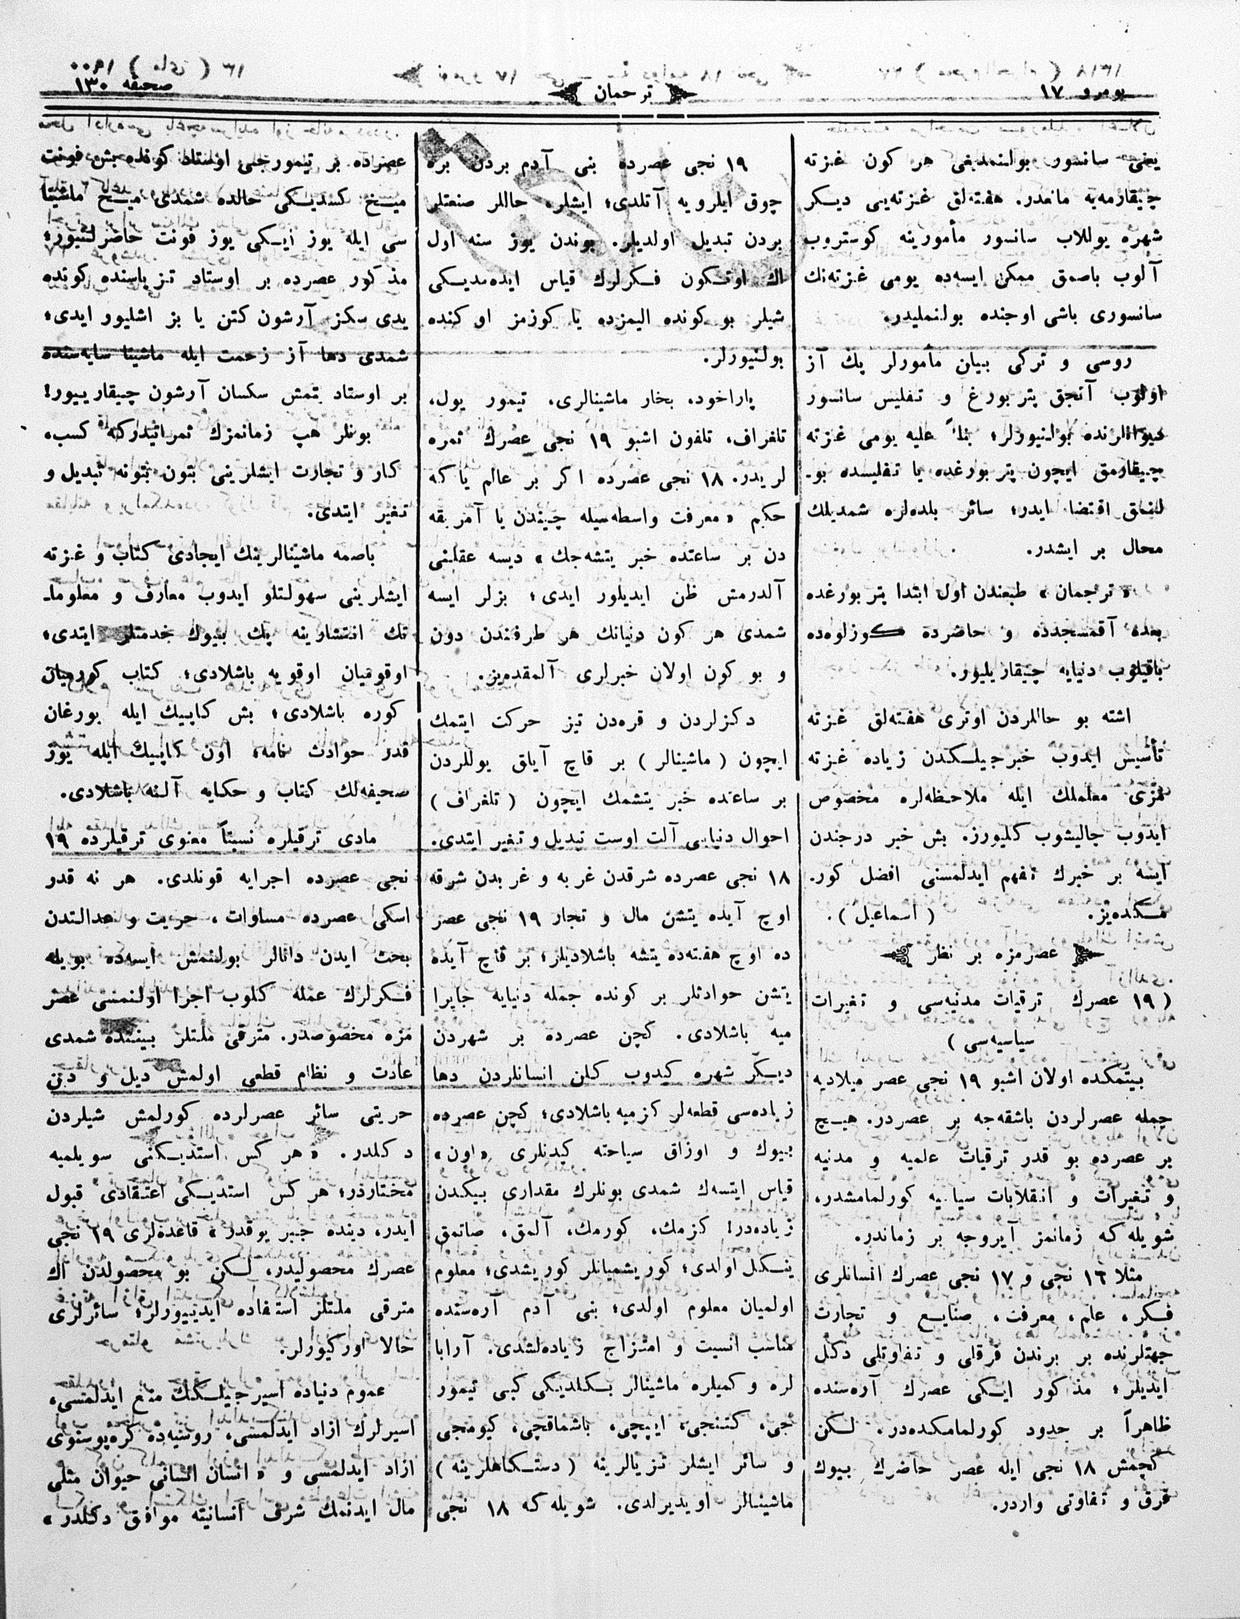 نومرو ۱۷
ترجمان
صحیفه ۱۳۰
یعنی سانسور بولنمدیغی هر كون غزته
چیقارمه‌یه مانعدر. هفته‌لق غزته‌یی دیكر
شهره یوللاب سانسور مأمورینه كوستروب
آلوب باصمق ممكن ایسه‌ده یومی غزته‌نك
سانسوری باشی اوجنده بولنملیدر.
روسی و تركی بیان مأمورلر پك آز
اولوب آنجق پتربورغ و تفلیس سانسور
دیوانلرنده بولنیورلر؛ بناً علیه یومی غزته
چیقارمق ایچون پتربورغده یا تفلیسده بو-
لنمق اقتضا ایدر؛ سائر بلده‌لره شمدیلك
محال بر ایشدر.
« ترجمان » طبعندن اول ابتدا پتربورغده
بعده آقمسجدده و حاضرده كوزلوه‌ده
باقیلوب دنیایه چیقاریلیور.
اشته بو حاللردن اوتری هفته‌لق غزته
تأسیس ایدوب خبرجیلكدن زیاده غزته
مزی معلملك ایله ملاحظه‌لره مخصوص
ایدوب چالیشوب كلیورز. بش خبر درجندن
ایسه بر خبرك تفهم ایدلمسنی افضل كور-
مكده‌یز. ( اسماعیل ).
عصرمزه بر نظر
( ۱۹ عصرك ترقیات مدنیه‌سی و تغیرات
سیاسیه‌سی )
بیتمكده اولان اشبو ۱۹ نجی عصر میلادیه
جمله عصرلردن باشقه‌جه بر عصردر. هیچ
بر عصرده بو قدر ترقیات علمیه و مدنیه
و تغیرات و انقلابات سیاسیه كورلمامشدر،
شویله‌كه زمانمز آیروجه بر زماندر.
مثلا ۱٦ نجی و ۱۷ نجی عصرك انسانلری
فكر، علم، معرفت، صنایع و تجارت
جهتلرنده بر برندن فرقلی و تفاوتلی دكل
ایدیلر؛ مذكور ایكی عصرك آره‌سنده
ظاهراً بر حدود كورلمامكده‌در. لكن
كچمش ۱۸ نجی ایله عصر حاضرك بیوك
فرق و تفاوتی واردر.
۱۹ نجی عصرده بنی آدم بردن بره
چوق ایلرویه آتلدی؛ ایشلر، حاللر صنعتلر
بردن تبدیل اولدیلر. بوندن یوز سنه اول
اك اوتكون فكرلرك قیاس ایده‌مدیكی
شیلر بو كونده الیمزده یا كوزمز اوكنده
بولنیورلر.
پاراخود، بخار ماشینالری، تیمور یول،
تلغراف، تلفون اشبو ۱۹ نجی عصرك ثمره
لریدر. ۱۸ نجی عصرده اكر بر عالم یاكه
حكیم « معرفت واسطه‌سیله چیندن یا آمریقه
دن بر ساعتده خبر یتشه‌جك » دیسه عقلنی
آلدرمش ظن ایدیلور ایدی؛ بزلر ایسه
شمدی هر كون دنیانك هر طرفندن دون
و بو كون اولان خبرلری آلمقده‌یز.
دكزلردن و قره‌دن تیز حركت ایتمك
ایچون ( ماشینالر ) بر قاچ آیاق یوللردن
بر ساعتده خبر یتشمك ایچون ( تلغراف )
احوال دنیایی آلت اوست تبدیل و تغیر ایتدی.
۱۸ نجی عصرده شرقدن غربه و غربدن شرقه
اوچ آیده یتشن مال و تجار ۱۹ نجی عصر
ده اوچ هفته‌ده یتشه باشلادیلر؛ بر قاچ آیده
یتشن حوادثلر بر كونده جمله دنیایه جاپرا
میه باشلادی. كچن عصرده بر شهردن
دیكر شهره كیدوب كلن انسانلردن دها
زیاده‌سی قطعه‌لر كزمیه باشلادی؛ كچن عصرده
بیوك و اوزاق سیاحته كیدنلری «اون»
قیاس ایتسه‌ك شمدی بونلرك مقداری بیكدن
زیاده‌در! كزمك، كورمك، آلمق، صاتمق
ینكل اولدی؛ كوریشمیانلر كوریشدی؛ معلوم
اولمیان معلوم اولدی؛ بنی آدم آره‌سنده
مناسب انسیت و امتزاج زیاده‌لشدی. آرابا
لره و كمیلره ماشینالر بكلدیكی كبی تیمور
جی، كتنجی، ایپچی، باشماقچی، كیومجی
و سائر ایشلر تزیالرینه ( دستكاهلرینه )
ماشینالر اویدیرلدی. شویله‌كه ۱۸ نجی
عصرده بر تیمورجی اوستاد كونده بش فونت
میخ كسدیكی حالده شمدی میخ ماشینا
سی ایله یوز ایكی یوز فونت حاضرلنیور؛
مذكور عصرده بر اوستاد تزیاسنده كونده
یدی سكز آرشون كتن یا بز اشلیور ایدی؛
شمدی دها آز زحمت ایله ماشینا سایه‌سنده
بر اوستاد یتمش سكسان آرشون چیقارییور!
بونلر هپ زمانمزك ثمراتیدركه كسب،
كار و تجارت ایشلرینی بتون بتونه تبدیل و
تغیر ایتدی.
باصمه ماشینالرینك ایجادی كتاب و غزته
ایشلرینی سهولتلو ایدوب معارف و معلوما-
تك انتشارینه پك بیوك خدمتلر ایتدی؛
اوقومیان اوقویه باشلادی؛ كتاب كورمیان
كوره باشلادی؛ بش كاپیك ایله یورغان
قدر حوادث نامه، اون كاپیك ایله یوز
صحیفه‌لك كتاب و حكایه آلنه باشلادی.
مادی ترقیلره نسبتاً معنوی ترقیلرده ۱۹
نجی عصرده اجرایه قونلدی. هر نه قدر
اسكی عصرده مساوات، حریت و عدالتدن
بحث ایدن دانالر بولنمش ایسه‌ده بویله
فكرلرك عمله كلوب اجرا اولنمسی عصر
مزه مخصوصدر. مترقی ملتلر بیننده شمدی
عادت و نظام قطعی اولمش دیل و دین
حریتی سائر عصرلرده كورلمش شیلردن
دكلدر. « هر كس استدیكنی سویلمیه
مختاردر؛ هر كس استدیكی اعتقادی قبول
ایدر، دینده جبر یوقدر » قاعده‌لری ۱۹ نجی
عصرك محصولیدر، لكن بو محصولدن اك
مترقی ملتلر استفاده ایدنییورلر؛ سائرلری
حالا اوركیورلر.
عموم دنیاده اسیرجیلكنك منع ایدلمسی،
اسیرلرك ازاد ایدلمسی، روسیه‌ده كره‌پوستنوی
ازاد ایدلمسی و « انسان انسانی حیوان مثلی
مال ایدنمك شرف انسانیته موافق دكلدر »